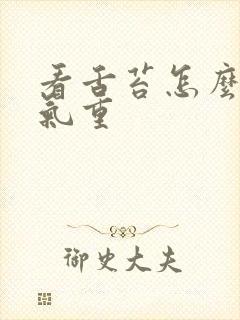 看舌苔怎麼
氣重
御史大夫